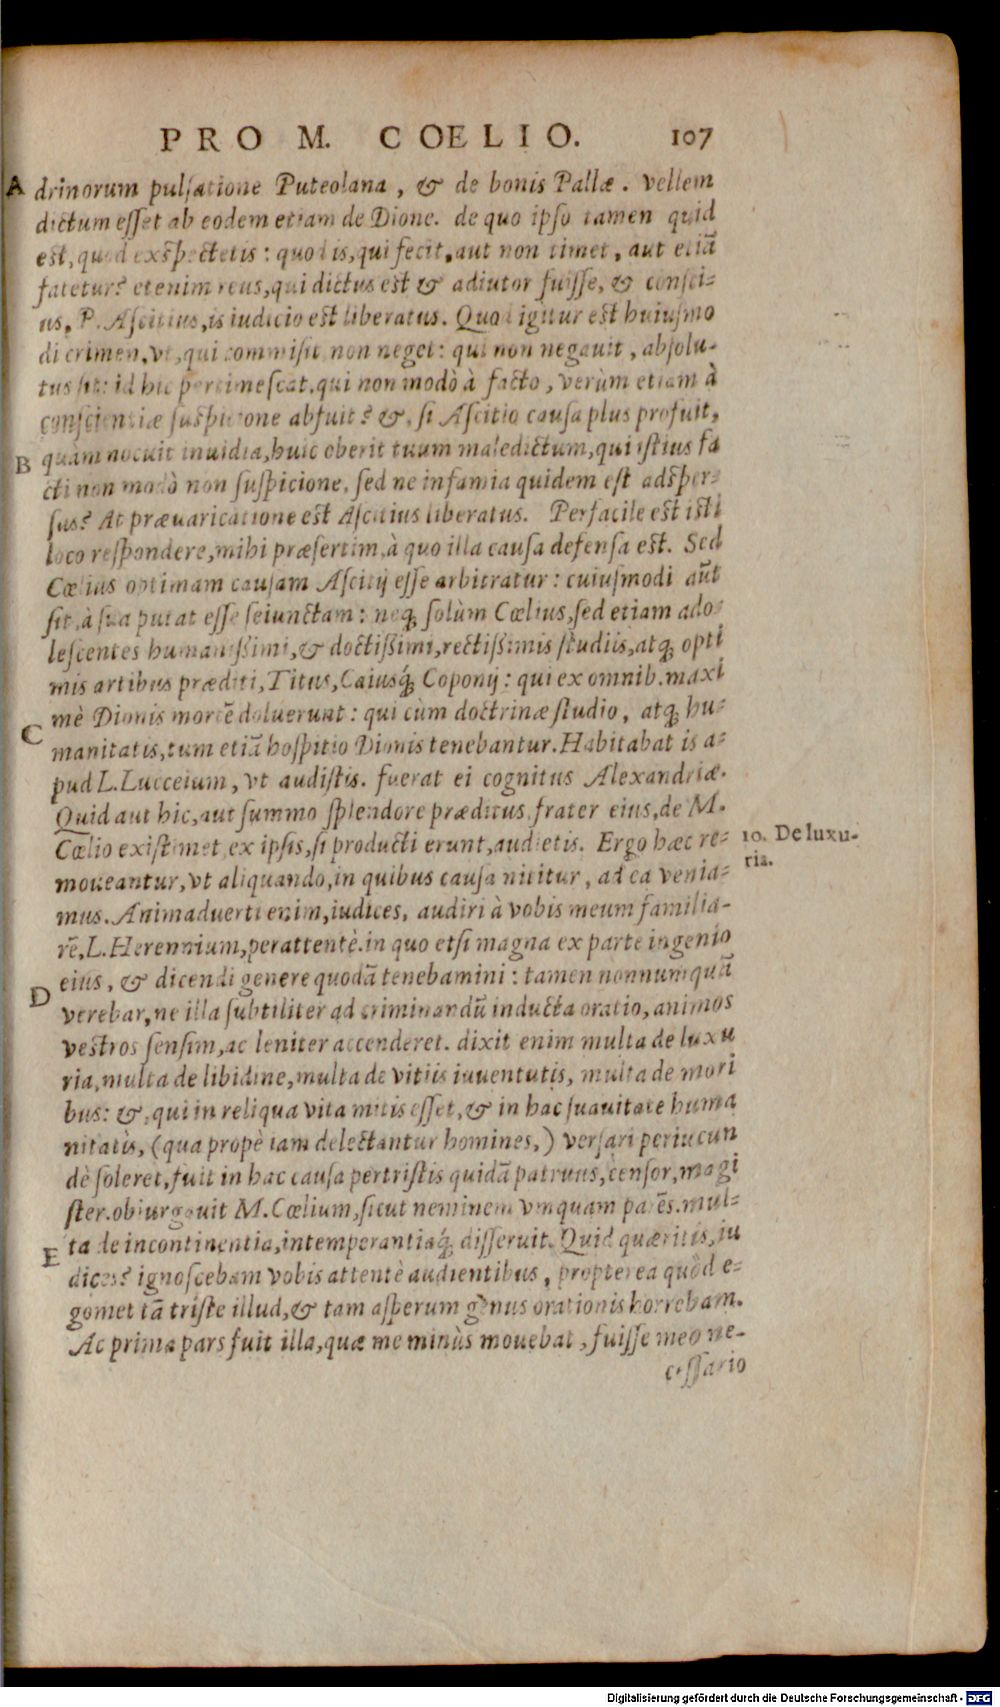 PRO M. COELIO. 107
A drinorum pulsatione Puteolana, & de bonis Pallæ. vellem
dictum esset ab eodem etiam de Dione. de quo ipso tamen quid
est, quod exspectetis: quod is, qui fecit, aut non timet, aut etiã
fatetur? etenim reus, qui dictus est & adiutor fuisse, & consci-
us, P. Ascitius, is iudicio est liberatus. Quod igitur est huiusmo
di crimen, vt, qui commisit, non neget: qui non negauit, absolu-
tus sit: id hic pertimescat, qui non modò à facto, verùm etiam à
conscientiæ suspicione abfuit? &, si Ascitio causa plus profuit,
B quàm nocuit inuidia, huic oberit tuum maledictum, qui istius fa
cti non modò non suspicione, sed ne infamia quidem est adsper-
sus? At præuaricatione est Ascitius liberatus. Perfacile est isti
loco respondere, mihi præsertim, à quo illa causa defensa est. Sed
Cœlius optimam causam Ascitij esse arbitratur: cuiusmodi aũt
sit, à sua putat esse seiunctam: neq; solùm Cœlius, sed etiam ado-
lescentes humanißimi, & doctißimi, rectißimis studiis, atq; opti
mis artibus præditi, Titus, Caiusq́; Coponij: qui ex omnib. maxi
C mè Dionis mortẽ doluerunt: qui cùm doctrinæ studio, atq; hu-
manitatis, tum etiã hospitio Dionis tenebantur. Habitabat is a-
pud L. Lucceium, vt audistis. fuerat ei cognitus Alexandriæ.
Quid aut hic, aut summo splendore præditus, frater eius, de M.
Cœlio existimet, ex ipsis, si producti erunt, audietis. Ergo hæc re-
10. De luxu-
ria.
moueantur, vt aliquando, in quibus causa nititur, ad ea venia-
mus. Animaduerti enim, iudices, audiri à vobis meum familia-
rẽ, L. Herennium, perattentè. in quo etsi magna ex parte ingenio
D eius, & dicendi genere quodã tenebamini: tamen nonnumquã
verebar, ne illa subtiliter ad criminandũ inducta oratio, animos
vestros sensim, ac leniter accenderet. dixit enim multa de luxu
ria, multa de libidine, multa de vitiis iuuentutis, multa de mori
bus: &, qui in reliqua vita mitis esset, & in hac suauitate huma
nitatis, (qua propè iam delectantur homines,) versari periucun
dè soleret, fuit in hac causa pertristis quidã patruus, censor, magi
ster. obiurgauit M. Cœlium, sicut neminem vmquam parẽs. mul-
E ta de incontinentia, intemperantiaq́; disseruit. Quid quæritis, iu
dices? ignoscebam vobis attentè audientibus, propterea quòd e-
gomet tã triste illud, & tam asperum genus orationis horrebam.
Ac prima pars fuit illa, quæ me minùs mouebat, fuisse meo ne-
cessario
Digitalisierung gefördert durch die Deutsche Forschungsgemeinschaft - DFG